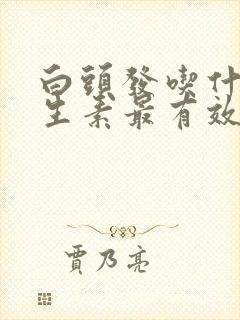 白頭發喫什
生素最有效
賈乃亮